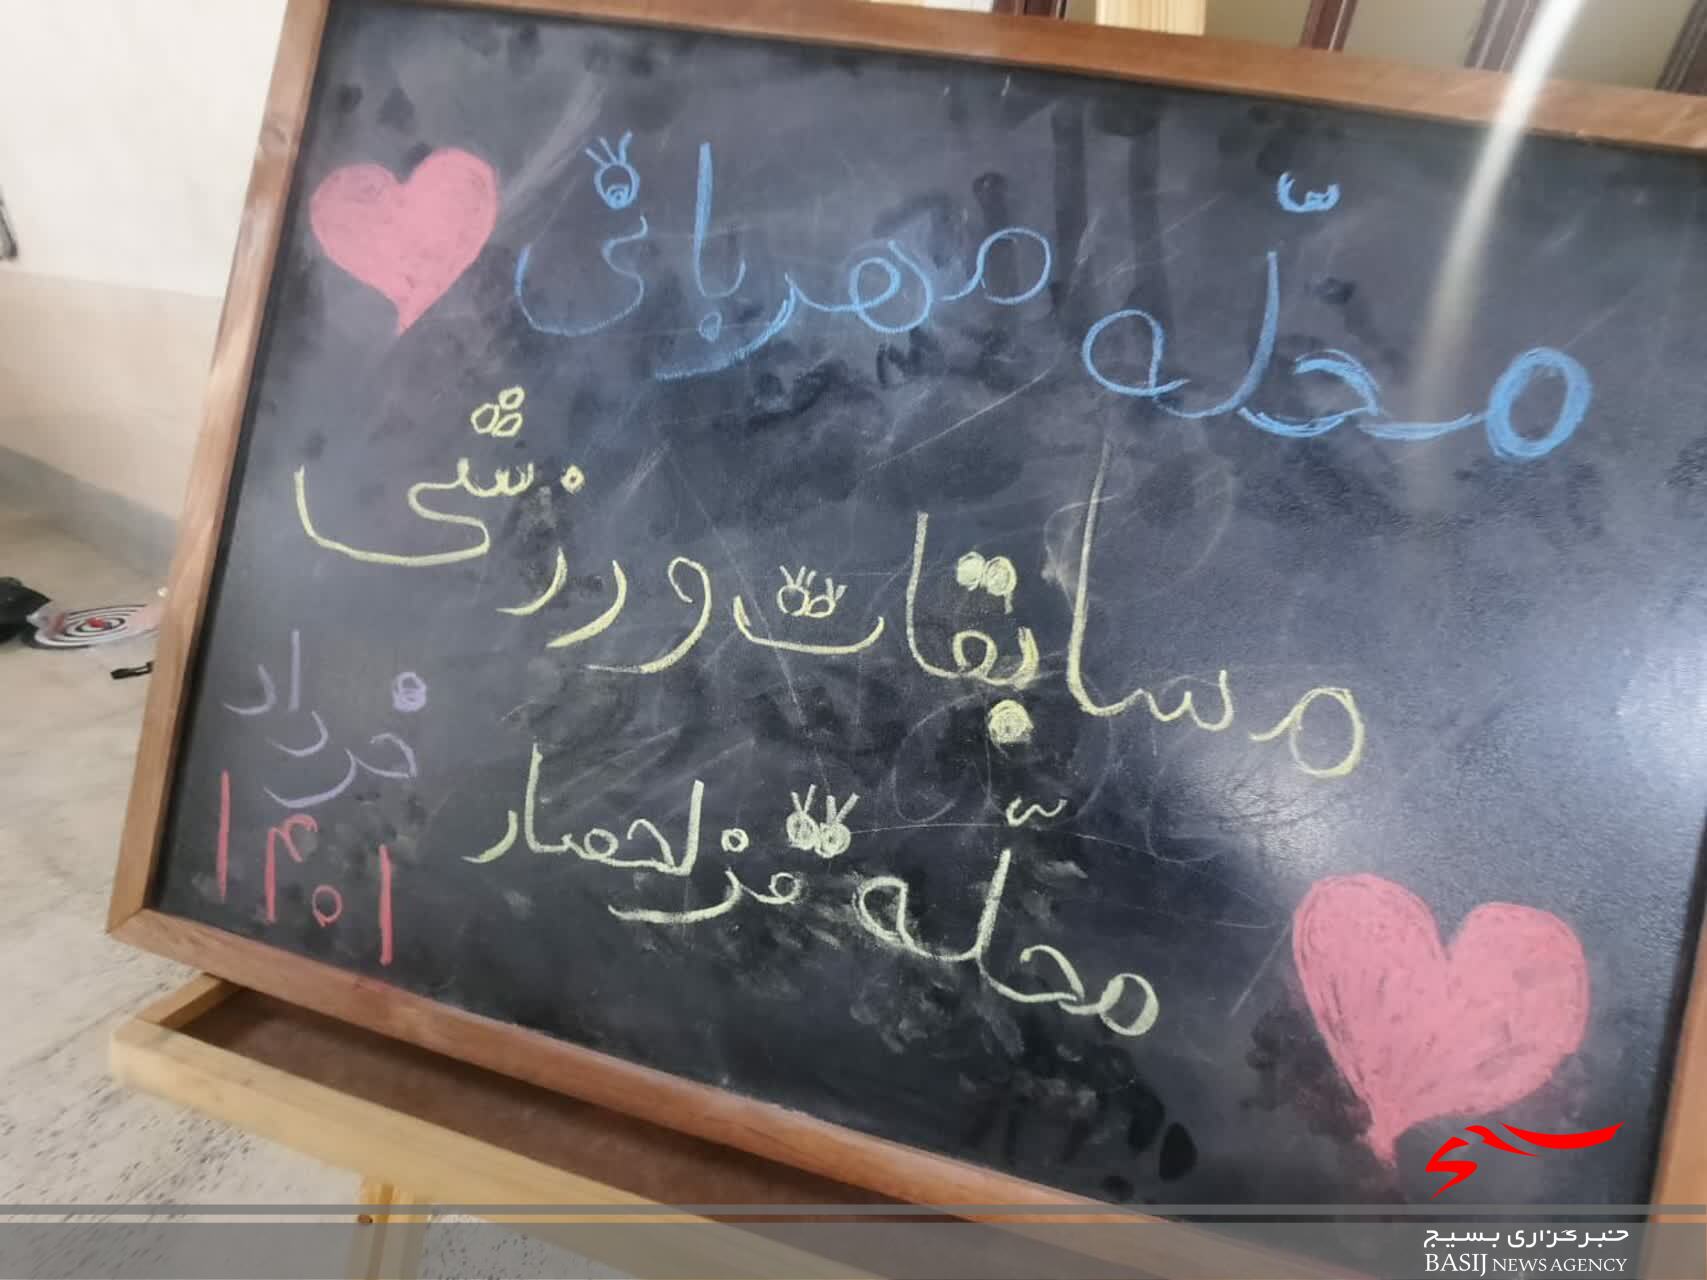 محلّه مهربانی
مسابقات ورزشی
محلّه قزلحصار
خرداد
۱۴۰۱
خبرگزاری بسیج
BASIJ NEWS AGENCY